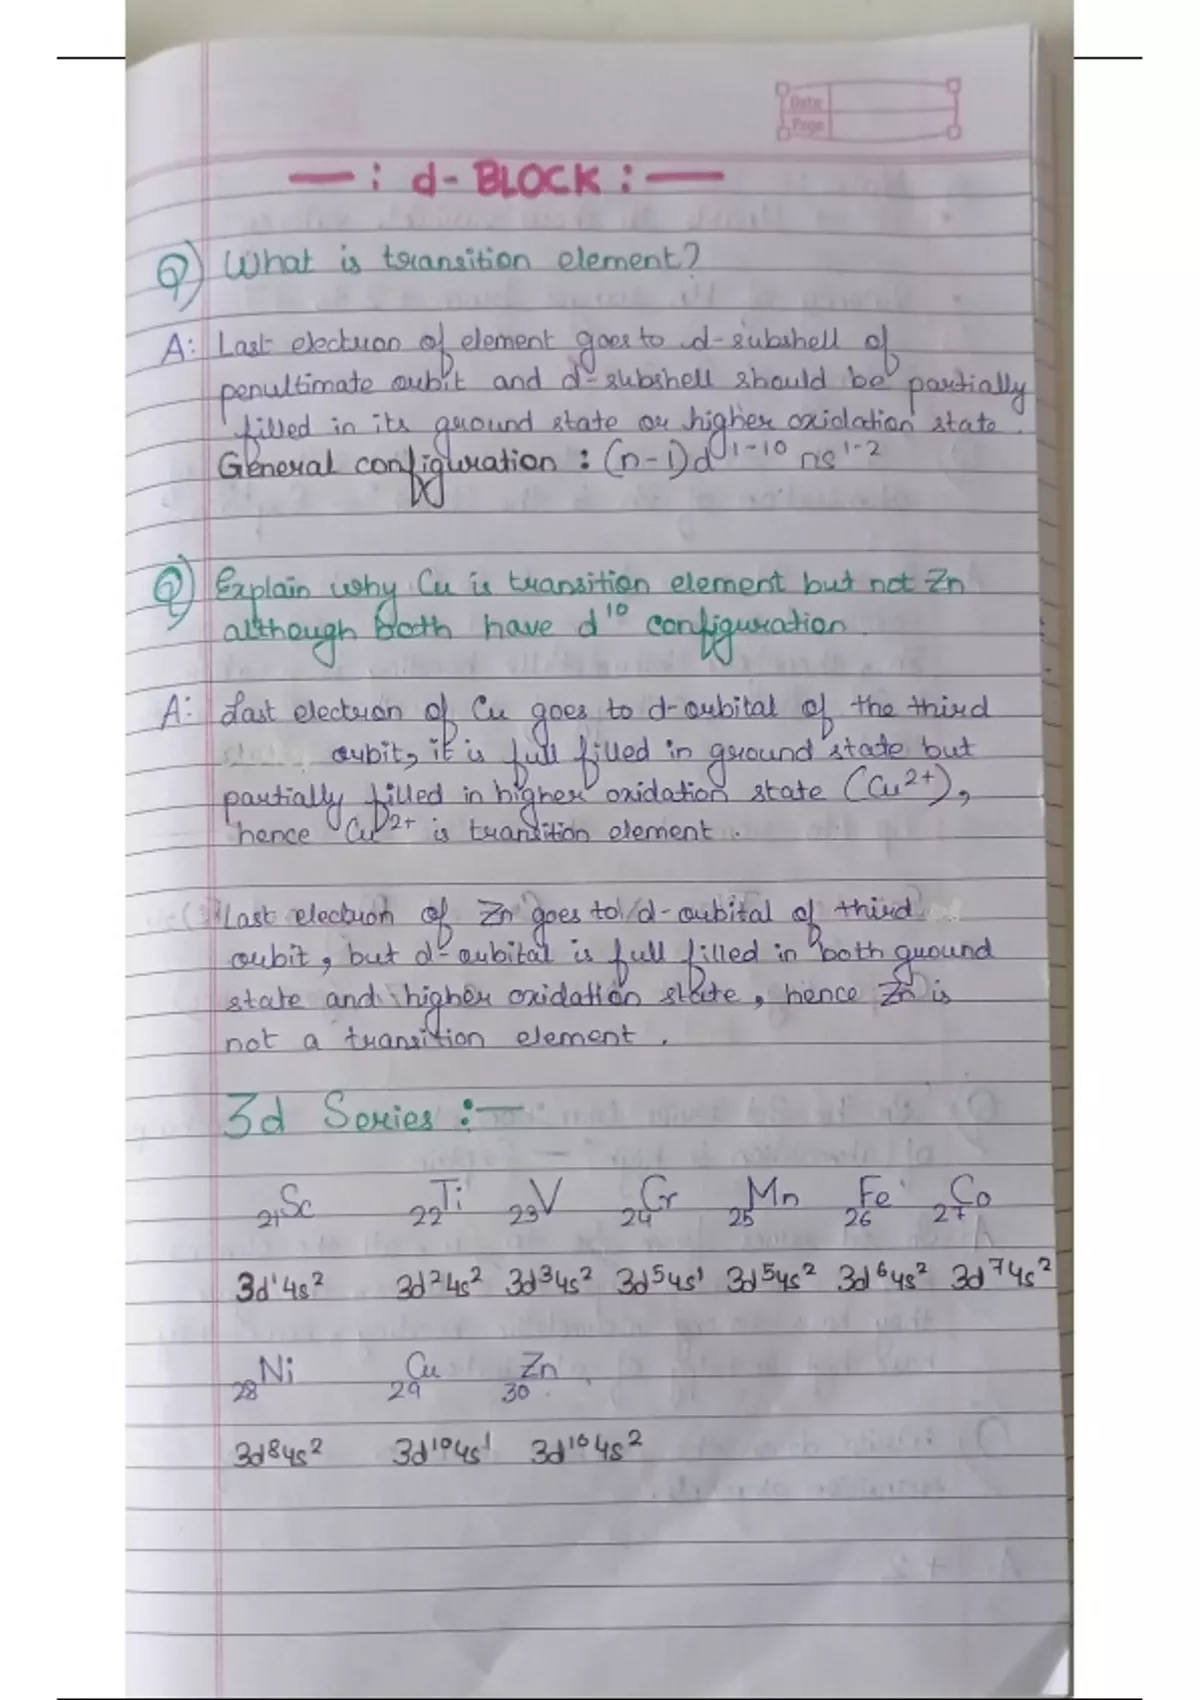 Date
Page
—: d-BLOCK :—
Q) What is transition element?
A: Last electron of element goes to d-subshell of
penultimate orbit and d-subshell should be partially
filled in its ground state or higher oxidation state.
General configuration : (n-1)d¹⁻¹⁰ ns¹⁻²
Q) Explain why Cu is transition element but not Zn
although both have d¹⁰ configuration.
A: Last electron of Cu goes to d-orbital of the third
orbit, it is full filled in ground state but
partially filled in higher oxidation state (Cu²⁺),
hence Cu²⁺ is transition element.
Last electron of Zn goes to d-orbital of third
orbit, but d-orbital is full filled in both ground
state and higher oxidation state, hence Zn is
not a transition element.
3d Series :—
₂₁Sc ₂₂Ti ₂₃V ₂₄Cr ₂₅Mn ₂₆Fe ₂₇Co
3d¹4s² 3d²4s² 3d³4s² 3d⁵4s¹ 3d⁵4s² 3d⁶4s² 3d⁷4s²
₂₈Ni ₂₉Cu ₃₀Zn
3d⁸4s² 3d¹⁰4s¹ 3d¹⁰4s²